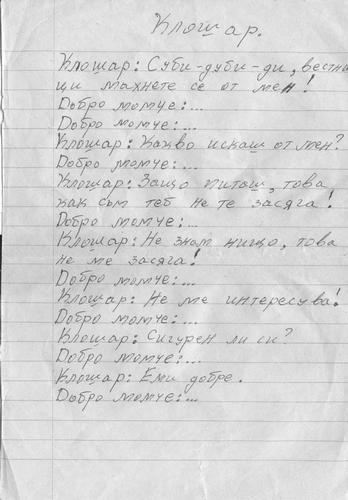 Клошар.
Клошар: Суби-дуби-ди, вестни
ци махнете се от мен!
Добро момче:...
Добро момче:...
Клошар: Какво искаш от мен?
Добро момче:...
Клошар: Защо питаш, това
как съм теб не те засяга!
Добро момче:...
Клошар: Не знам нищо, това
не ме засяга!
Добро момче:...
Клошар: Не ме интересува!
Добро момче:...
Клошар: Сигурен ли си?
Добро момче:...
Клошар: Ами добре.
Добро момче:...